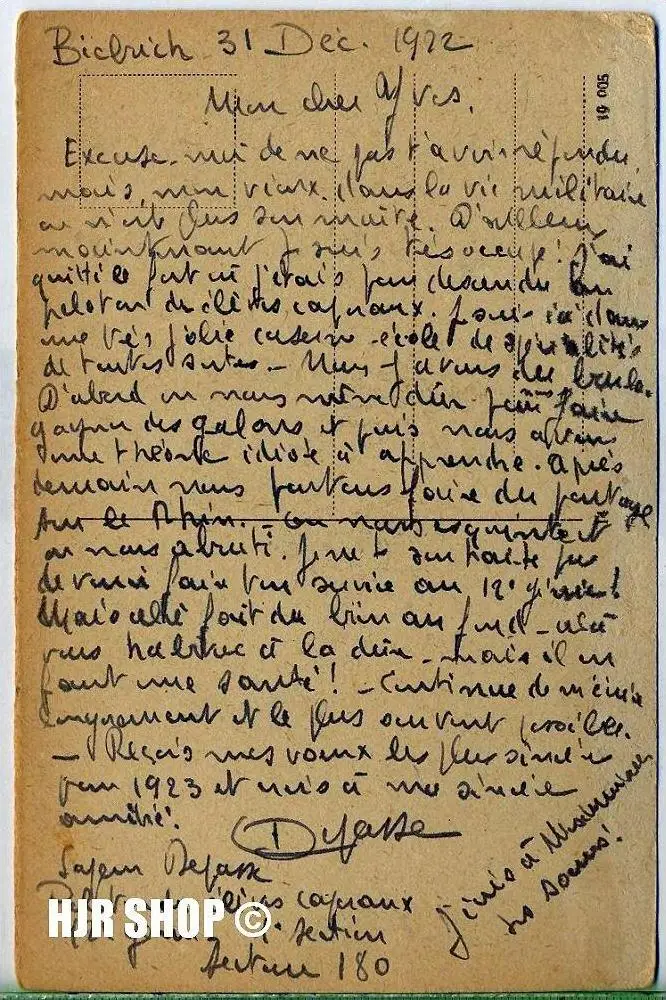 Biebrich 31 Déc. 1922
19 005
Mon cher Yves,
Excuse-moi de ne pas t'avoir répondu
mais, mon vieux, dans la vie militaire
on n'est plus son maître. D'ailleurs
maintenant je suis très occupé! J'ai
quitté le fort où j'étais pour descendre au
peloton des élèves caporaux. Je suis ici dans
une très jolie caserne - école de spécialités
de toutes sortes - Mais j'avons du boulot.
D'abord on nous mène dur pour faire
gagner des galons et puis nous avons
une théorie idiote à apprendre. Après
demain nous partons faire du pontage
sur le Rhin. - on nous esquinte et
on nous abrutit. Je ne te souhaite pas
de venir faire ton service au 12e génie!
Mais cela fait du bien au fond - cela
vous habitue à la dure - mais il en
faut une santé! - Continue de m'écrire
longuement et le plus souvent possible.
- Reçois mes voeux les plus sincères
pour 1923 et crois à ma sincère
amitié!
Defasse
Sapeur Defasse
élèves caporaux
section
Secteur 180
J'écris à
des soeurs!
HJR SHOP ©